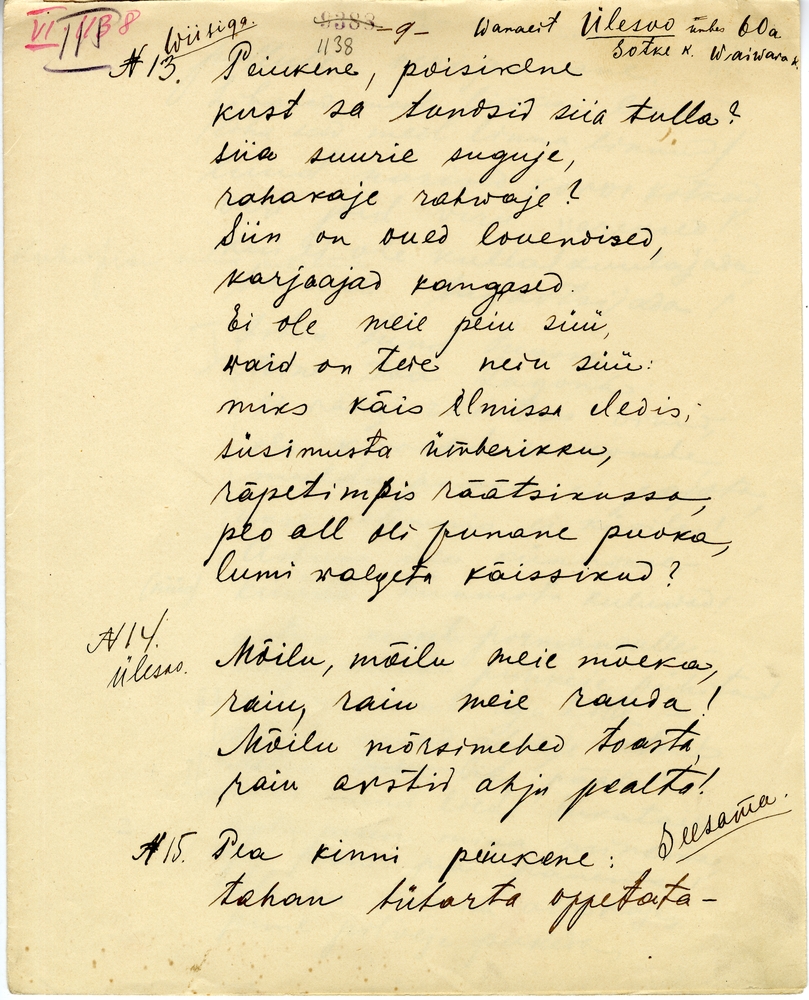 VI 1138
III
Wiisiga.
9388
1138
-9-
Wanaeit Ülesoo ümbes 60a
Sotke k. Waiwara k.
N 13. Peiukene, poisikene
kust sa tundsid siia tulla?
siia suurie suguje,
rahakaje rahwaje?
Siin on oued louendised,
karjaajad kangased.
Ei ole meie peiu süü,
waid on teie neiu süü:
miks käis ilmissa eledis,
süsimusta ümberikku,
räpetimpis räätsikussa,
peo all oli punane puoka,
lumi walgeta käissikud?
N 14.
Ülesoo.
Mõilu, mõilu meie mõeka,
raiu, raiu meie rauda!
Mõilu mõrsimehed toasta,
raiu arstid ahju pealta!
Seesama.
N 15. Pea kinni peiukene:
tahan tütarta oppetata-